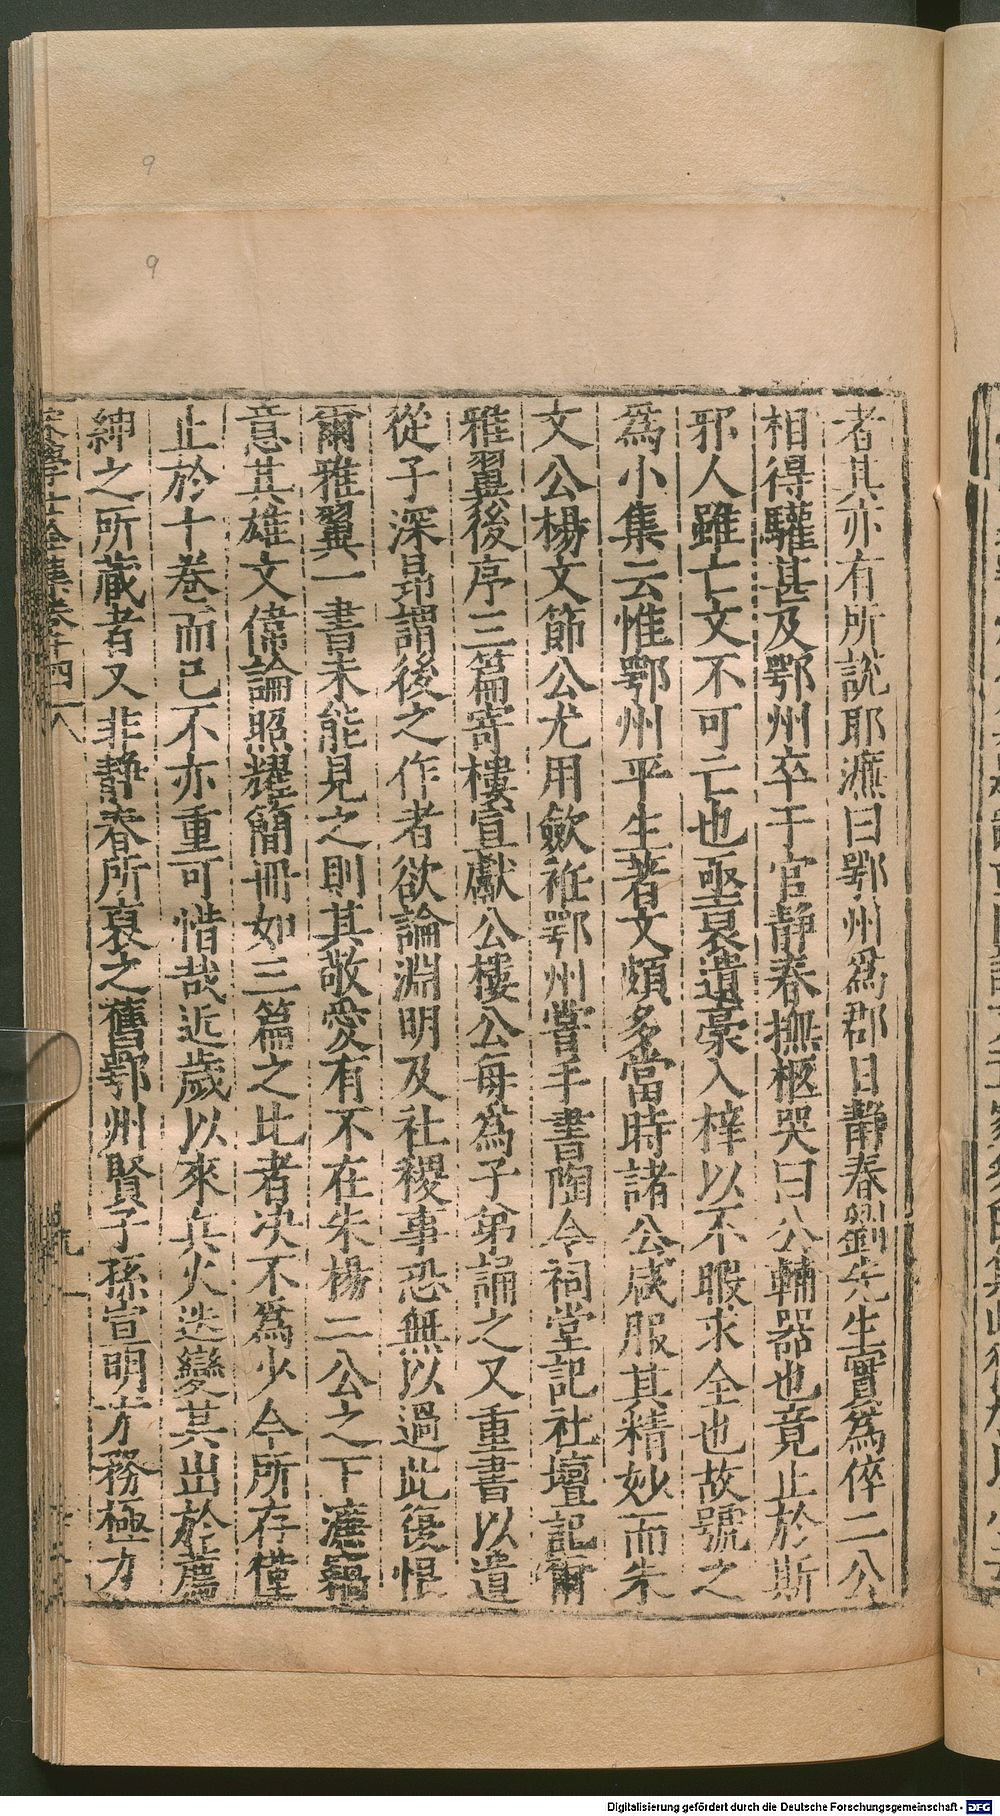 者其亦有所說耶濂曰鄂州爲郡日靜春劉先生實爲倅二公
相得驩甚及鄂州卒于官靜春撫柩哭曰公輔器也竟止於斯
邪人雖亡文不可亡也亟裒遺稾入梓以不暇求全也故號之
爲小集云惟鄂州平生著文頗多當時諸公咸服其精妙而朱
文公楊文節公尤用歛衽鄂州嘗手書陶令祠堂記社壇記爾
雅翼後序三篇寄樓宣獻公樓公每爲子弟誦之又重書以遺
從子深且謂後之作者欲論淵明及社稷事恐無以過此復恨
爾雅翼一書未能見之則其敬愛有不在朱楊二公之下濂竊
意其雄文偉論照耀簡冊如三篇之比者决不爲少今所存僅
止於十卷而已不亦重可惜哉近歲以來兵火迭變其出於薦
紳之所藏者又非靜春所裒之舊鄂州賢子孫宣明方務極力
宋學士全集卷
9
9
Digitalisierung gefördert durch die Deutsche Forschungsgemeinschaft - DFG